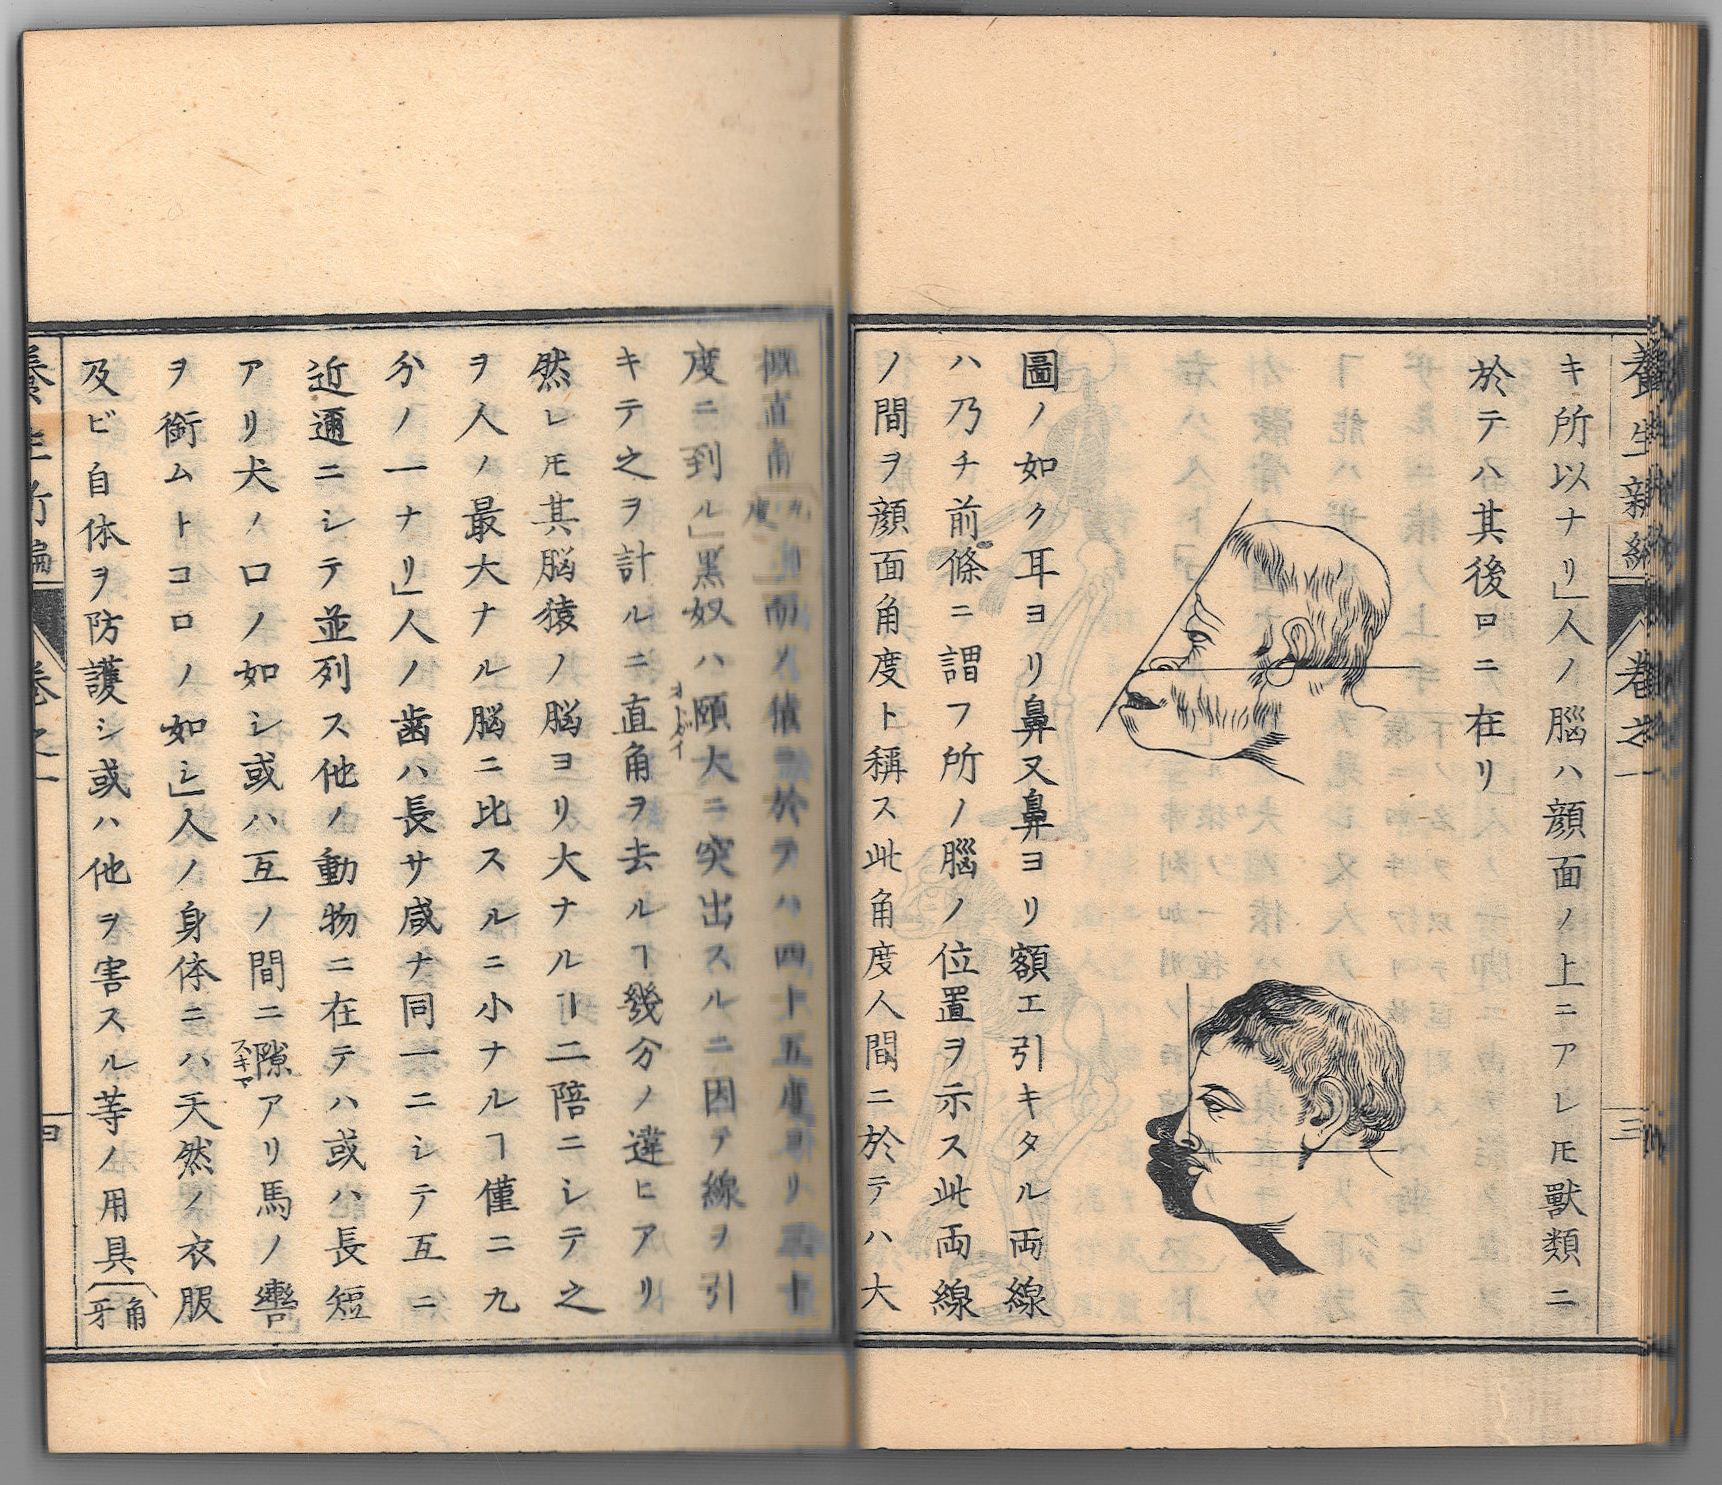 養生新編 卷之一 三
キ所以ナリ」人ノ腦ハ顔面ノ上ニアレ𪜈獸類ニ
於テハ其後ロニ在リ
圖ノ如ク耳ヨリ鼻又鼻ヨリ額エ引キタル両線
ハ乃チ前條ニ謂フ所ノ腦ノ位置ヲ示ス此両線
ノ間ヲ顔面角度ト稱ス此角度人間ニ於テハ大
概直角 而 猿ニ於テハ四十五度ヨリ 十
度ニ到ル」黒奴ハ頤大ニ突出スルニ因テ線ヲ引
オトガイ
キテ之ヲ計ルニ直角ヲ去ルヿ幾分ノ違ヒアリ
然レ𪜈其脳猿ノ脳ヨリ大ナルヿ二陪ニシテ之
ヲ人ノ最大ナル脳ニ比スルニ小ナルヿ僅ニ九
分ノ一ナリ」人ノ歯ハ長サ咸ナ同一ニシテ互ニ
近邇ニシテ並列ス他ノ動物ニ在テハ或ハ長短
アリ犬ノ口ノ如シ或ハ互ノ間ニ隙アリ馬ノ轡
スキマ
ヲ銜ムトコロノ如シ」人ノ身体ニハ天然ノ衣服
及ビ自体ヲ防護シ或ハ他ヲ害スル等ノ用具角牙
養生新編 卷之一 四